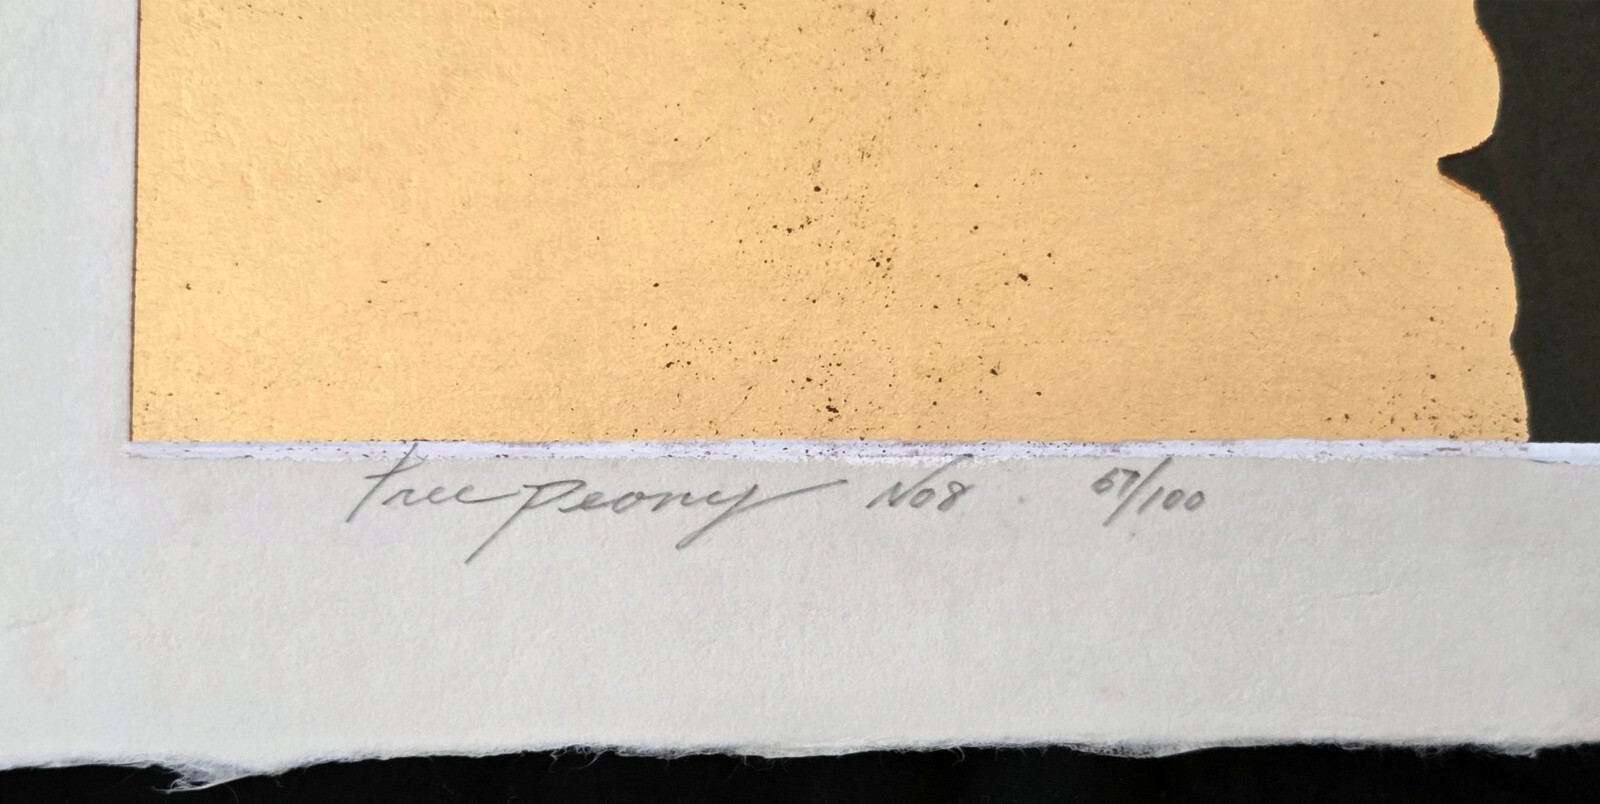 Tree Peony No8 57/100